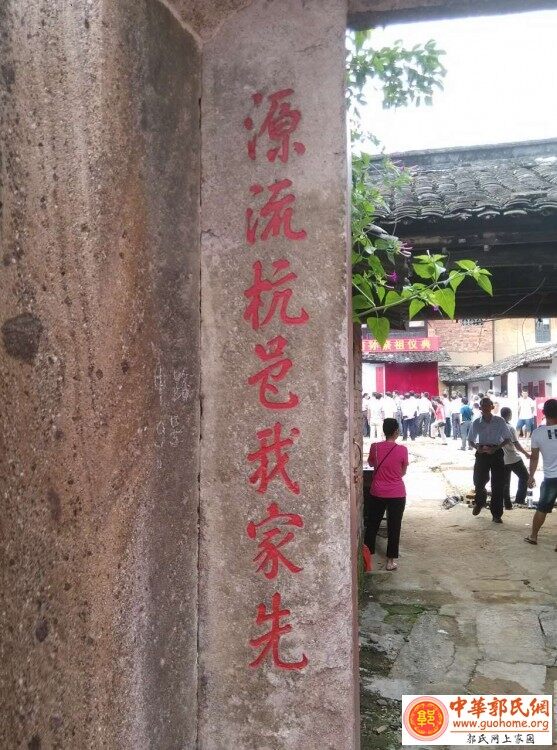 源流杭邑我家先
祭祖仪典
中華郭氏網
www.guohome.org
郭氏网上家园